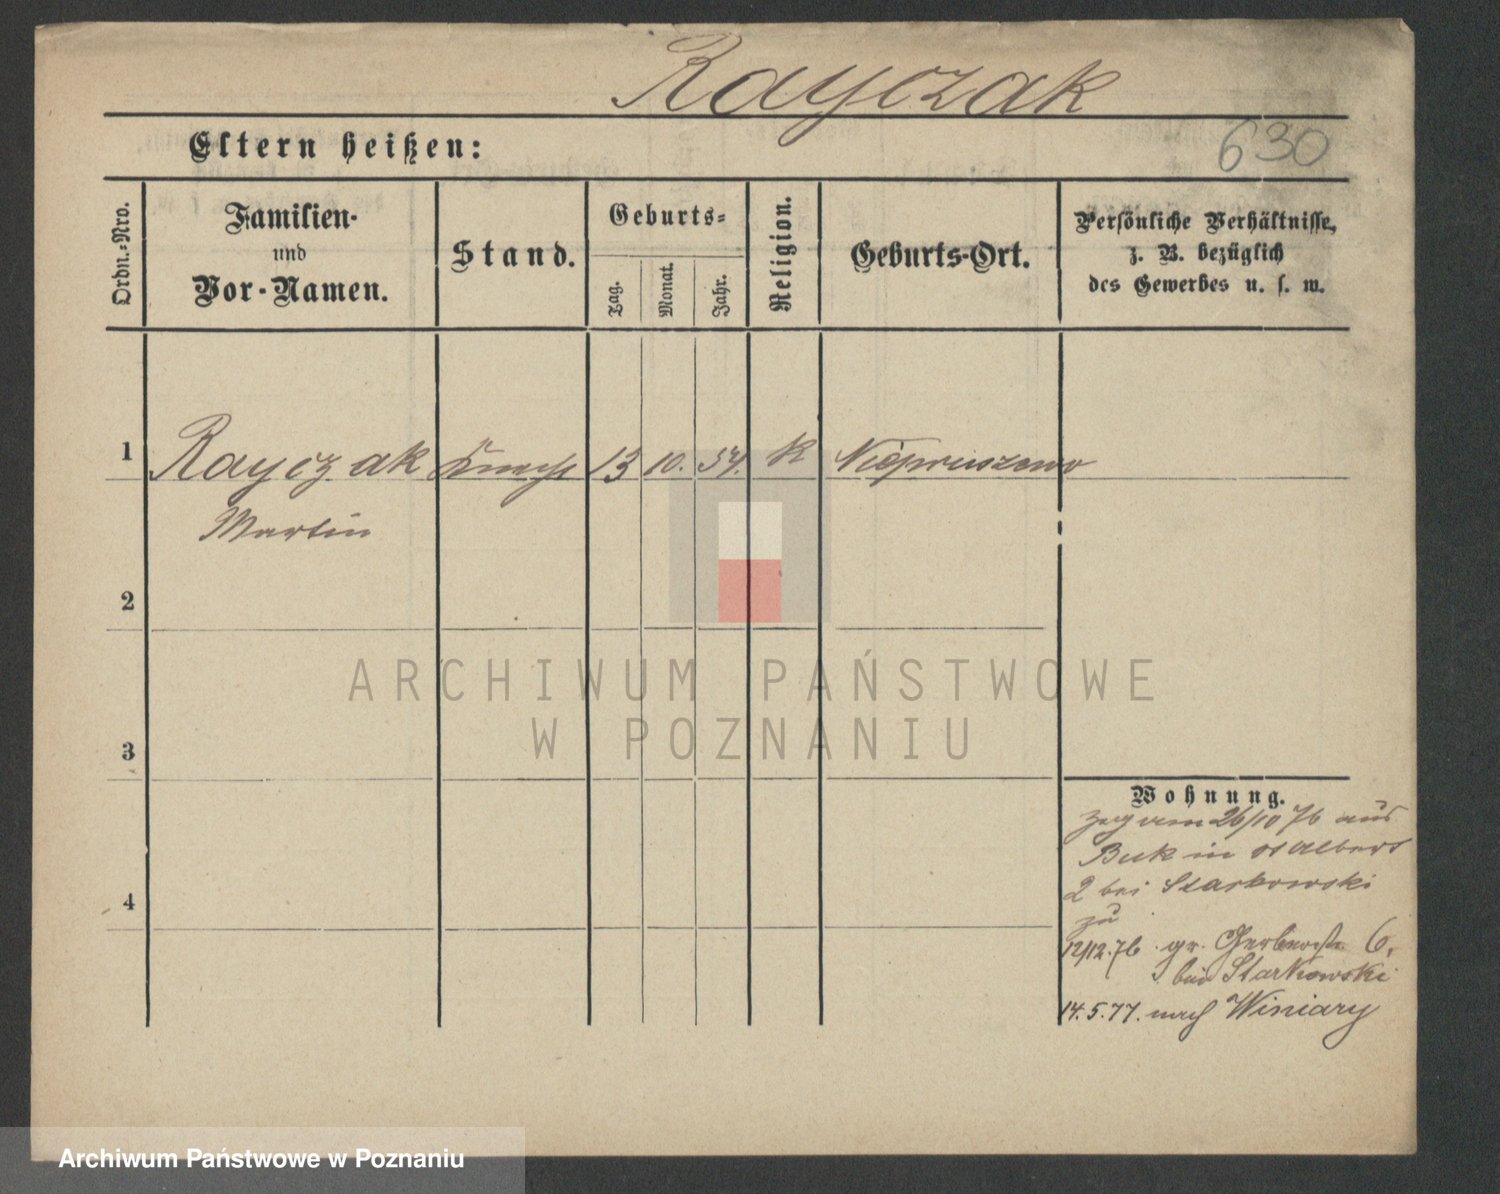 Rayczak
Eltern heißen:
630
Ordn.-Nro.
Familien-
und
Vor-Namen.
Stand.
Geburts-
Tag.
Monat.
Jahr.
Religion.
Geburts-Ort.
Persönliche Verhältnisse,
z. B. bezüglich
des Gewerbes u. s. w.
1 Rayczak Knecht 13 10. 54. K Niepruszewo
Martin
2
3
4
ARCHIWUM PAŃSTWOWE
W POZNANIU
Wohnung.
26/10 76 aus
Buk in St Albert
2 bei Starkowski
zu
12/12.76. gr. Gerberstr 6,
bei Starkowski
14.5.77. nach Winiary
Archiwum Państwowe w Poznaniu